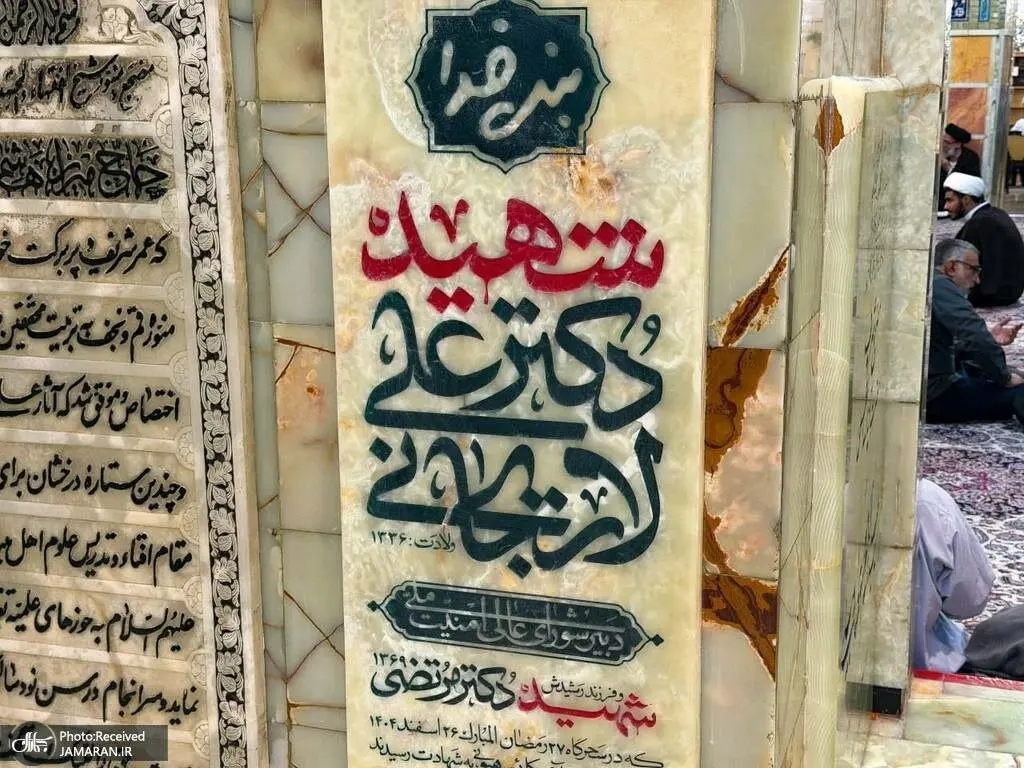 بنده خدا
شهیده
دکتر علی
لاریجانی
ولادت: ۱۳۳۶
دبیر شورای عالی امنیت ملی
و فرزند رشیدش
شهید دکتر مرتضی ۱۳۶۹
که در سحرگاه ۲۷ رمضان المبارک ۲۶ اسفند ۱۴۰۴
به شهادت رسیدند
حاج میرزا هاشم
که عمر شریف و پر برکت خو
اختصاص و موفق شد که آثار علـ
و چندین ستارهٔ درخشان برای
مقام افتاء و تدریس علوم اهل
علیهم السلام به حوزه‌های علمیه
نماید و سرانجام در سن نود سا
Photo:Received
JAMARAN.IR